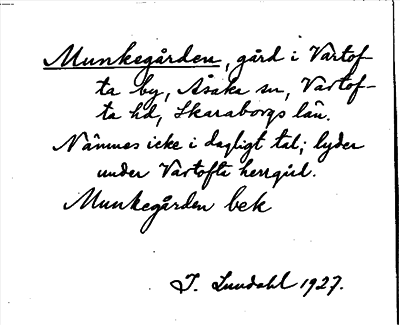 Munkegården, gård i Vartof-
ta by, Åsaka sn, Vartof-
ta hd, Skaraborgs län.
Nämnes icke i dagligt tal; lyder
under Vartofta herrgård.
Munkegården bek
J. Lundahl 1927.